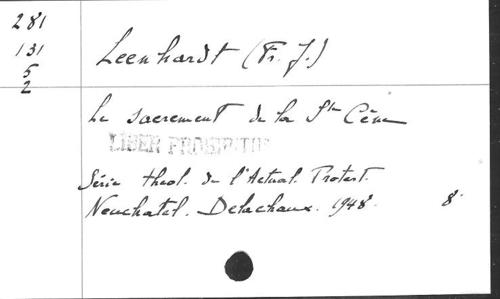 281
131
5
2
Leenhardt (Fr. J.)
Le sacrement de la Ste Cène
LIBER PROHIBITUS
Série théol. de l'Actual. Protest.
Neuchatel. Delachaux. 1948. 8°